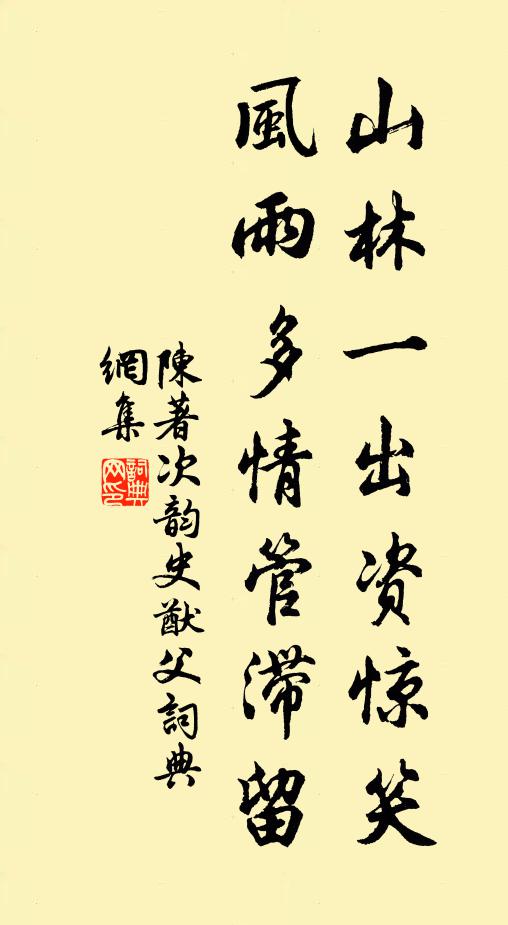 山林一出资惊笑
風雨多情管滞留
陳著次韵史猷父詞典
網集
詞典
网印